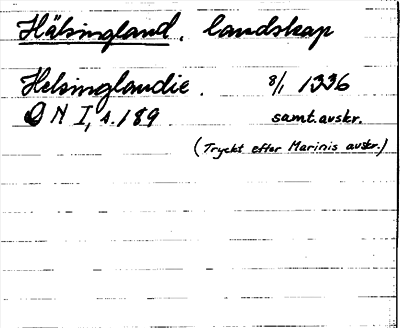 Hälsingland. landskap
Helsinglandie. 8/1 1336
DN I, s. 189. samt. avskr.
(Tryckt efter Marinis avskr.)